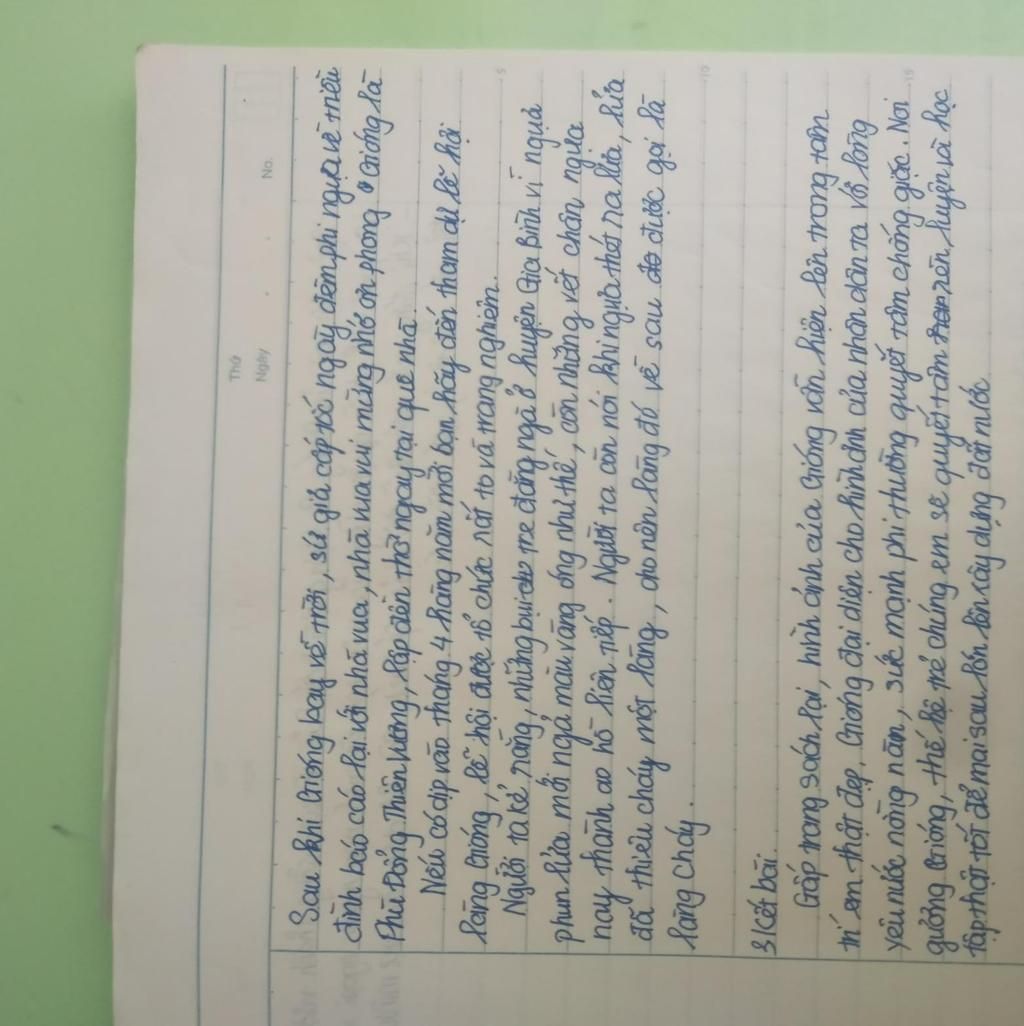 Thứ
Ngày
No.
Sau khi Gióng bay về trời, sứ giả cấp tốc ngày đêm phi ngựa về triều
đình báo cáo lại với nhà vua, nhà vua vui mừng nhớ ơn phong Gióng là
Phù Đổng Thiên Vương, lập đền thờ ngay tại quê nhà.
Nếu có dịp vào tháng 4 hằng năm mời bạn hãy đến tham dự lễ hội
làng Gióng, lễ hội được tổ chức rất to và trang nghiêm.
Người ta kể rằng, những bụi tre đằng ngà ở huyện Gia Bình vì ngựa
phun lửa mới ngả màu vàng óng như thế, còn những vết chân ngựa
nay thành ao hồ liên tiếp. Người ta còn nói khi ngựa thét ra lửa, lửa
đã thiêu cháy một làng, cho nên làng đó về sau được gọi là
làng Cháy.
3/Kết bài.
Gấp trang sách lại, hình ảnh của Gióng vẫn hiện lên trong tâm
trí em thật đẹp, Gióng đại diện cho hình ảnh của nhân dân ta về lòng
yêu nước nồng nàn, sức mạnh phi thường quyết tâm chống giặc. Noi
gương Gióng, thế hệ trẻ chúng em sẽ quyết tâm rèn luyện và học
tập thật tốt để mai sau lớn lên xây dựng đất nước
5
10
15